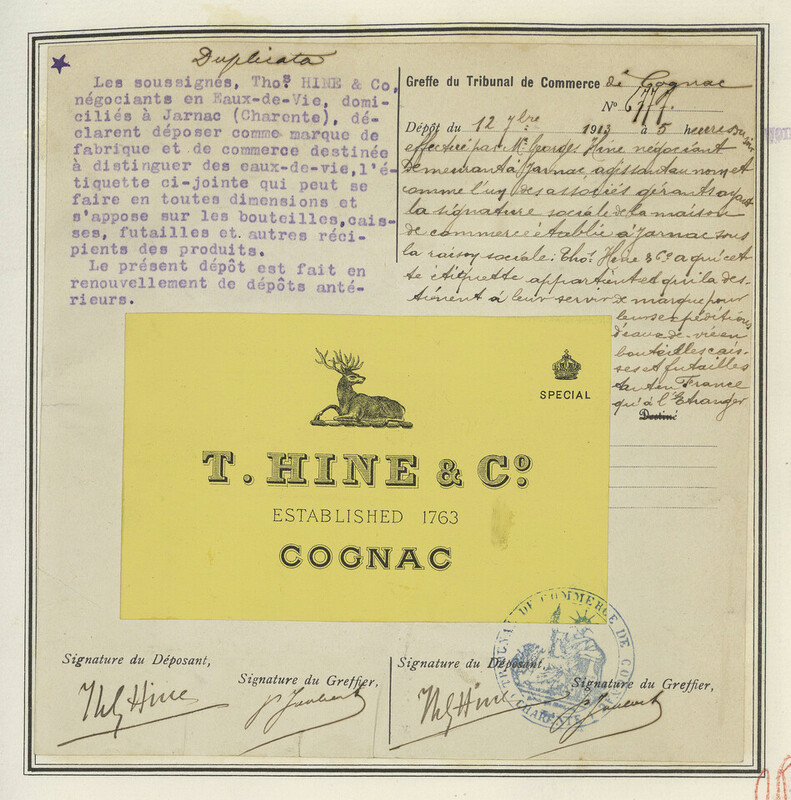 Duplicata
Les soussignés, Tho.s HINE & Co,
négociants en Eaux-de-Vie, domi-
ciliés à Jarnac (Charente), dé-
clarent déposer comme marque de
fabrique et de commerce destinée
à distinguer des eaux-de-vie, l'é-
tiquette ci-jointe qui peut se
faire en toutes dimensions et
s'appose sur les bouteilles, cais-
ses, futailles et autres réci-
pients des produits.
Le présent dépôt est fait en
renouvellement de dépôts anté-
rieurs.
Greffe du Tribunal de Commerce de Cognac
N°
Dépôt du 12 7bre 1913 à 5 heures du soir
effectué par Mr. Georges Hine négociant
demeurant à Jarnac, agissant au nom et
comme l'un des associés gérants ayant
la signature sociale de la maison
de commerce établie à Jarnac sous
la raison sociale: Thos. Hine & Co a qui cet-
te étiquette appartient et qui la des-
tinent à leur servir de marque pour
leurs expéditions
d'eaux-de-vie en
bouteilles cais-
ses et futailles
tant en France
qu'à l'Etranger
Destiné
SPECIAL
T. HINE & Co.
ESTABLISHED 1763
COGNAC
TRIBUNAL DE COMMERCE DE CO
CHARENTE
Signature du Déposant,
Signature du Greffier,
Hine
Signature du Déposant,
Signature du Greffier,
Hine